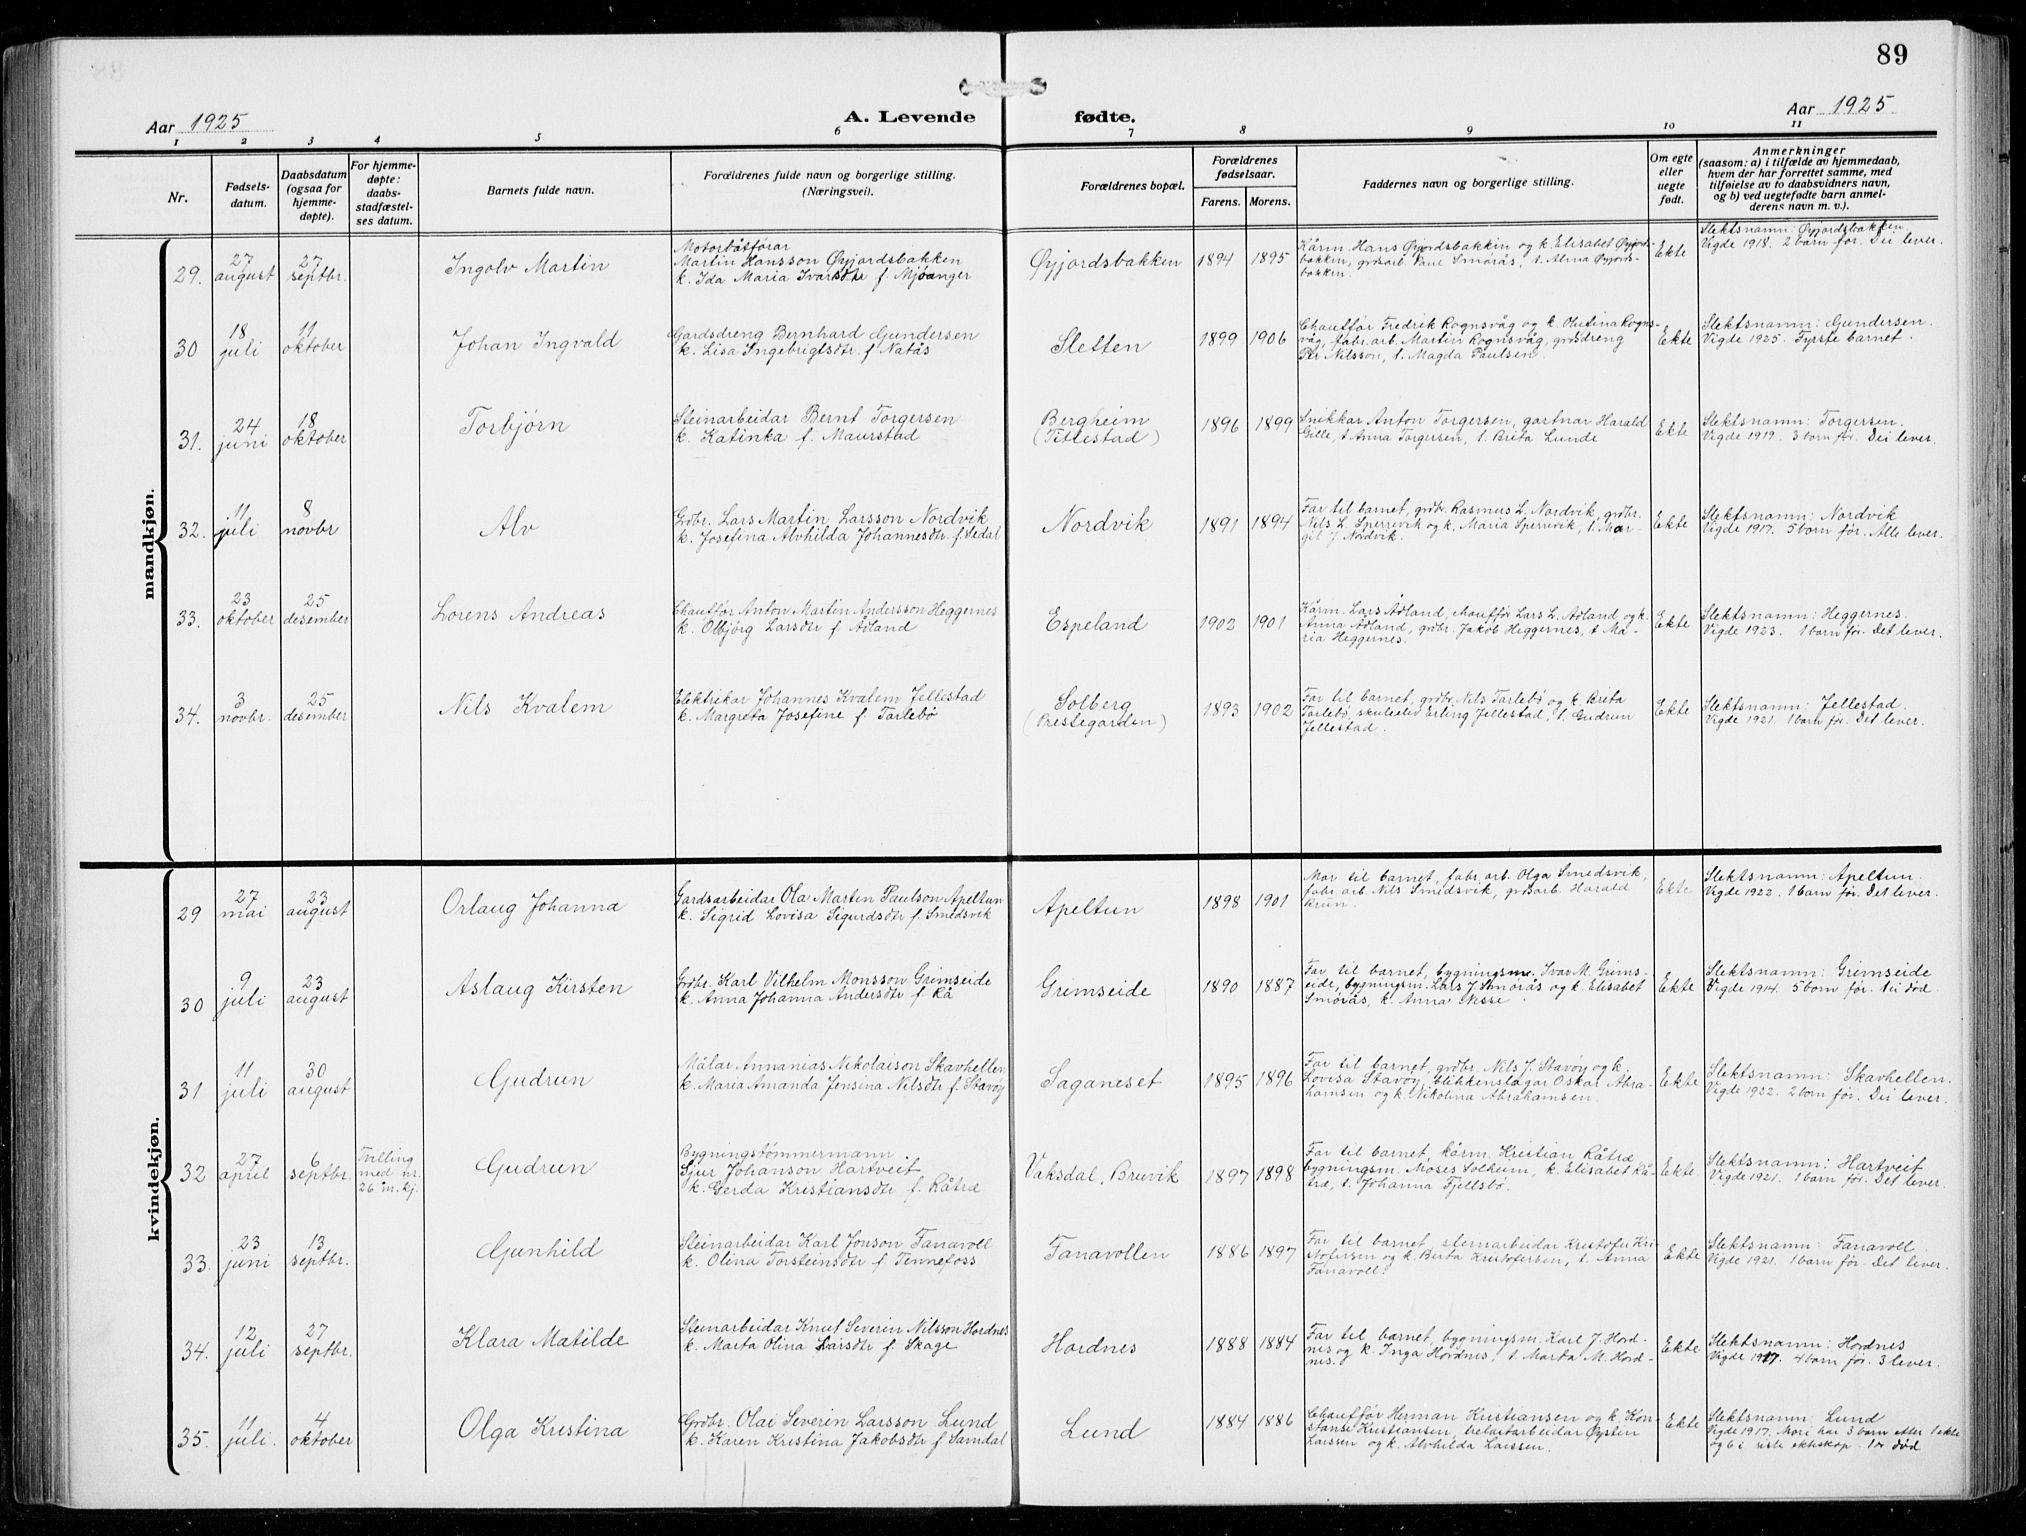 89
Aar 1925
A. Levende fødte.
Aar 1925
1 2 3 4 5 6 7 8 9 10 11
Nr.
Fødsels-
datum.
Daabsdatum
(ogsaa for
hjemme-
døpte).
For hjemme-
døpte:
daabs-
stadfæstel-
ses datum.
Barnets fulde navn.
Forældrenes fulde navn og borgerlige stilling.
(Næringsvei).
Forældrenes bopæl.
Forældrenes
fødselsaar.
Farens. Morens.
Faddernes navn og borgerlige stilling.
Om egte
eller
uegte
født.
Anmerkninger
(saasom: a) i tilfælde av hjemmedaab,
hvem der har forrettet samme, med
tilføielse av to daabsvidners navn,
og b) ved uegtefødte barn anmel-
derens navn m. v.).
mandkjøn.
29.
27
august
27
septbr.
Ingolv Martin
Motorbåtførar
Martin Hansson Øyjordsbakken
k. Ida Maria Ivarsdtr f. Mjøanger
Øyjordsbakken
1894 1895
Kårm. Hans Øyjordsbakkin og k. Elisabet Øyjords-
bakken, grdsarb. Paul Smörås, t. Alma Øyjords-
bakken.
Ekte
Slektsnamn: Øyjordsbakken
Vigde 1918. 2 barn før. Dei lever.
30
18
juli
11
oktober
Johan Ingvald
Gardsdreng Bernhard Gundersen
k. Lisa Ingebrigtsdtr. f Natås
Sletten
1899 1906
Chauffør Fredrik Rognsvåg og k. Olutina Rogns-
våg, fabr. arb. Martin Rognsvåg, grdsdreng
Pr Nilsson, t. Magda Paulsen.
Ekte
Slektsnamn: Gundersen.
Vigde 1925. Fyrste barnet.
31.
24
juni
18
oktober
Torbjørn
Steinarbeidar Bernt Torgersen
k. Katinka f. Maurstad
Bergheim
(Titlestad)
1896 1899
Snikkar Anton Torgersen, gartnar Harald
Gille, t Anna Torgersen, t. Brita Lunde
Ekte
Slektsnamn: Torgersen.
Vigde 1919. 3 born før. Dei lever.
32.
11
juli
8
novbr
Alv
Grdbr. Lars Martin Larsson Nordvik
k. Josefina Alvhilda Johannesdtr f. Sedal
Nordvik
1891 1894
Far til barnet, grdbr. Rasmus L. Nordvik, grdbr.
Nils L. Sperrevik og k. Maria Sperrevik, t. Mar-
git J. Nordvik.
Ekte
Slektsnamn: Nordvik
Vigde 1917. 5 born før. Alle lever.
33.
23
oktober
25
desember
Lorens Andreas
Chauffør Anton Martin Andersson Heggernes
k. Olbjörg Larsdtr f Ådland
Espeland
1902 1901
Kårm. Lars Ådland, chauffør Lars L. Ådland og k.
Anna Ådland, grdbr. Jakob Heggernes, t Ma-
ria Heggernes.
Ekte
Slektsnamn: Heggernes.
Vigde 1923. 1 barn før. Det lever.
34.
3
novbr.
25
desember
Nils Kvalem
Elektrikar Johannes Kvalem Jellestad
k. Margreta Josefine f Tarlebø
Solberg
(Prestegarden)
1893 1902
Far til barnet, grdbr. Nils Tarlebø og k. Brita
Tarlebø, skuleelev Erling Jellestad, t. Gudrun
Jellestad.
Ekte
Slektsnamn: Jellestad.
Vigde 1921. 1 barn før. Det lever.
kvindekjøn.
29
27
mai
23
august
Orlaug Johanna
Gardsarbeidar Ola Martin Paulson Apeltun
k. Sigrid Lovisa Sigurdsdtr f Smedsvik
Apeltun
1898 1901
Mor til barnet, fabr. arb. Olga Smedsvik,
fabr. arb. Nils Smedsvik, grdsarb. Harald
Brun.
Ekte
Slektsnamn: Apeltun.
Vigde 1922. 1 barn før. Det lever.
30
9
juli
23
august
Aslaug Kirsten
Grdbr. Karl Vilhelm Monsson Grimseide
k. Anna Johanna Andersdtr f. Rå
Grimseide
1890 1887
Far til barnet, bygningsm. Ivar M. Grims-
eide, bygningsm. Lars J Smørås og k. Elisabet
Smørås, k. Anna Nesse.
Ekte
Slektsnamn: Grimseide
Vigde 1914. 5 born før. Ei død.
31
11
juli
30
august
Gudrun
Målar Annanias Nikolaison Skavhellen
k. Maria Amanda Jensina Nilsdtr f. Stavøy
Saganeset
1895 1896
Far til barnet, grdbr. Nils J. Stavøy og k.
Lovisa Stavøy, blikkenslagar Oskar Abra-
hamsen og k. Nikolina Abrahamsen.
Ekte
Slektsnamn: Skavhellen.
Vigde 1922. 2 born før. Dei lever.
32
27
april
6
septbr.
Tvilling
med nr.
26 m. kj.
Gudrun
Bygningstømmermann
Sjur Johanson Hartveit
k. Gerda Kristiansdtr f. Råtræ
Vaksdal, Bruvik
1897 1898
Far til barnet, kårm. Kristian Råtræ
bygningsm. Moses Solheim, k. Elisabet Rå-
træ, t. Johanna Fjellsbø.
Ekte
Slektsnamn: Hartveit
Vigde 1921. 1 barn før. Det lever.
33.
23
juni
13
septbr.
Gunhild
Steinarbeidar Karl Jonson Fanavoll
k. Olina Torsteinsdtr f Tennefoss
Fanavollen
1886 1897
Far til barnet, steinarbeidar Kristofer Kri-
stofersen og k. Berta Kristofersen, t. Anna
Fanavoll.
Ekte
Slektsnamn: Fanavoll.
Vigde 1921. 1 barn før. Det lever.
34.
12
juli
27
septbr.
Klara Matilde
Steinarbeidar Knut Severin Nilsson Hordnes
k. Marta Olina Larsdtr f. Skage
Hordnes
1888 1884
Far til barnet, bygningsm. Karl J. Hord-
nes og k. Inga Hordnes, t. Marta M. Hord-
nes.
Ekte
Slektsnamn: Hordnes
Vigde 1917. 4 born før. 3 lever.
35.
11
juli.
4
oktober
Olga Kristina
Grdbr. Olai Severin Larsson Lund
k. Karen Kristina Jakobsdtr f Samdal
Lund
1884 1886
Chauffør Herman Kristiansen og k. Kon-
stanse Kristiansen, arbeidar Øystein
Larssen og k. Alvhilda Larssen.
Ekte
Slektsnamn: Lund
Vigde 1917. Mori har 3 born etter 1 ekte
og 6 i siste ekteskap. 1 er død